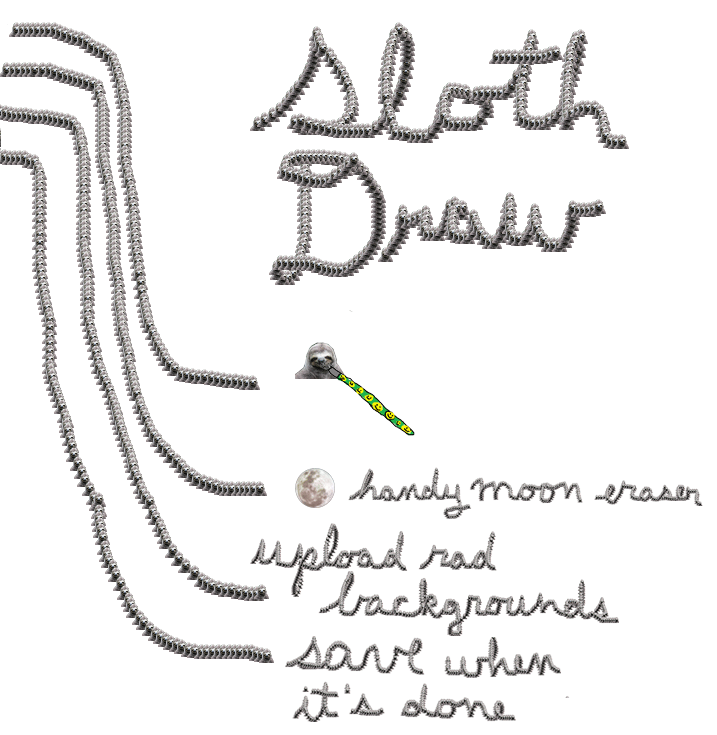 Sloth
Draw
handy moon eraser
upload rad
backgrounds
save when
it's done